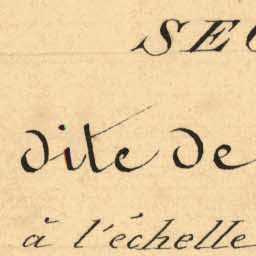 SEC
dite de
à l'échelle